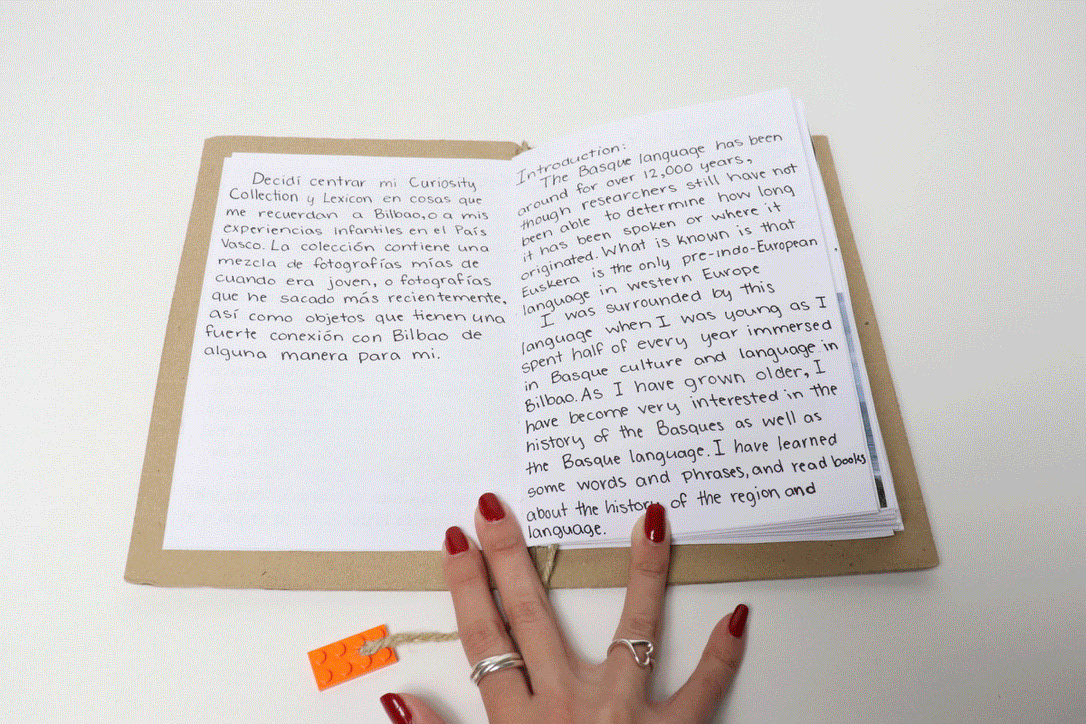 Decidí centrar mi Curiosity
Collection y Lexicon en cosas que
me recuerdan a Bilbao, o a mis
experiencias infantiles en el País
Vasco. La colección contiene una
mezcla de fotografías mías de
cuando era joven, o fotografías
que he sacado más recientemente,
así como objetos que tienen una
fuerte conexión con Bilbao de
alguna manera para mi.
Introduction:
The Basque language has been
around for over 12,000 years,
though researchers still have not
been able to determine how long
it has been spoken or where it
originated. What is known is that
Euskera is the only pre-indo-European
language in western Europe
I was surrounded by this
language when I was young as I
spent half of every year immersed
in Basque culture and language in
Bilbao. As I have grown older, I
have become very interested in the
history of the Basques as well as
the Basque language. I have learned
some words and phrases, and read books
about the history of the region and
language.